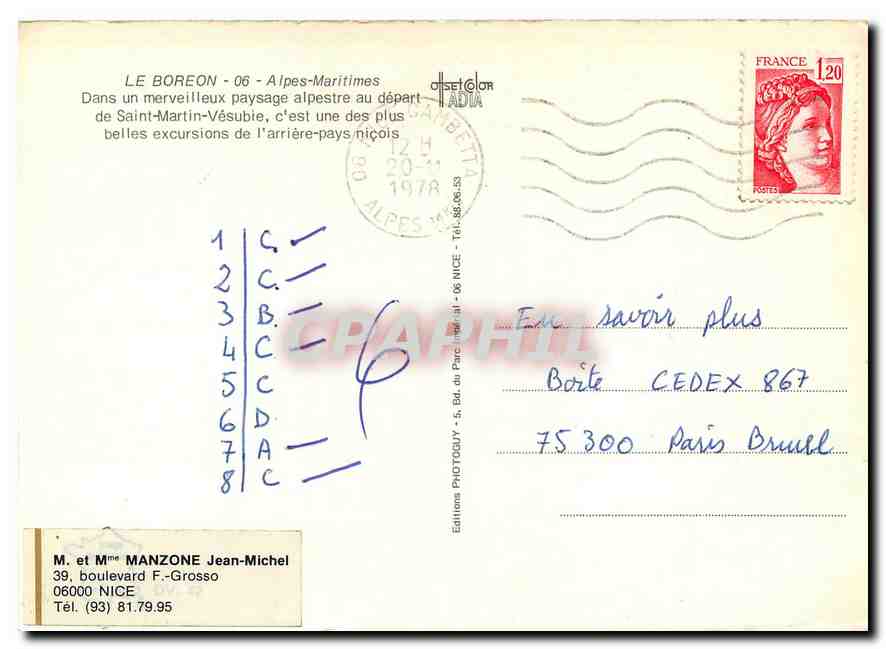 LE BOREON - 06 - Alpes-Maritimes
Dans un merveilleux paysage alpestre au départ
de Saint-Martin-Vésubie, c'est une des plus
belles excursions de l'arrière-pays niçois
OFFSET COLOR
ADIA
FRANCE 1,20
POSTES
06 GAMBETTA
12 H
20-11
1978
ALPES
1 C.
2 C.
3 B.
4 C
5 C
6 D.
7 A
8 C
6
Editions PHOTOGUY - 5, Bd. du Parc Impérial - 06 NICE - Tél. 88.06.53
CPAPHIL
En savoir plus
Boîte CEDEX 867
75300 Paris Brune
M. et Mme MANZONE Jean-Michel
39, boulevard F.-Grosso
06000 NICE
Tél. (93) 81.79.95